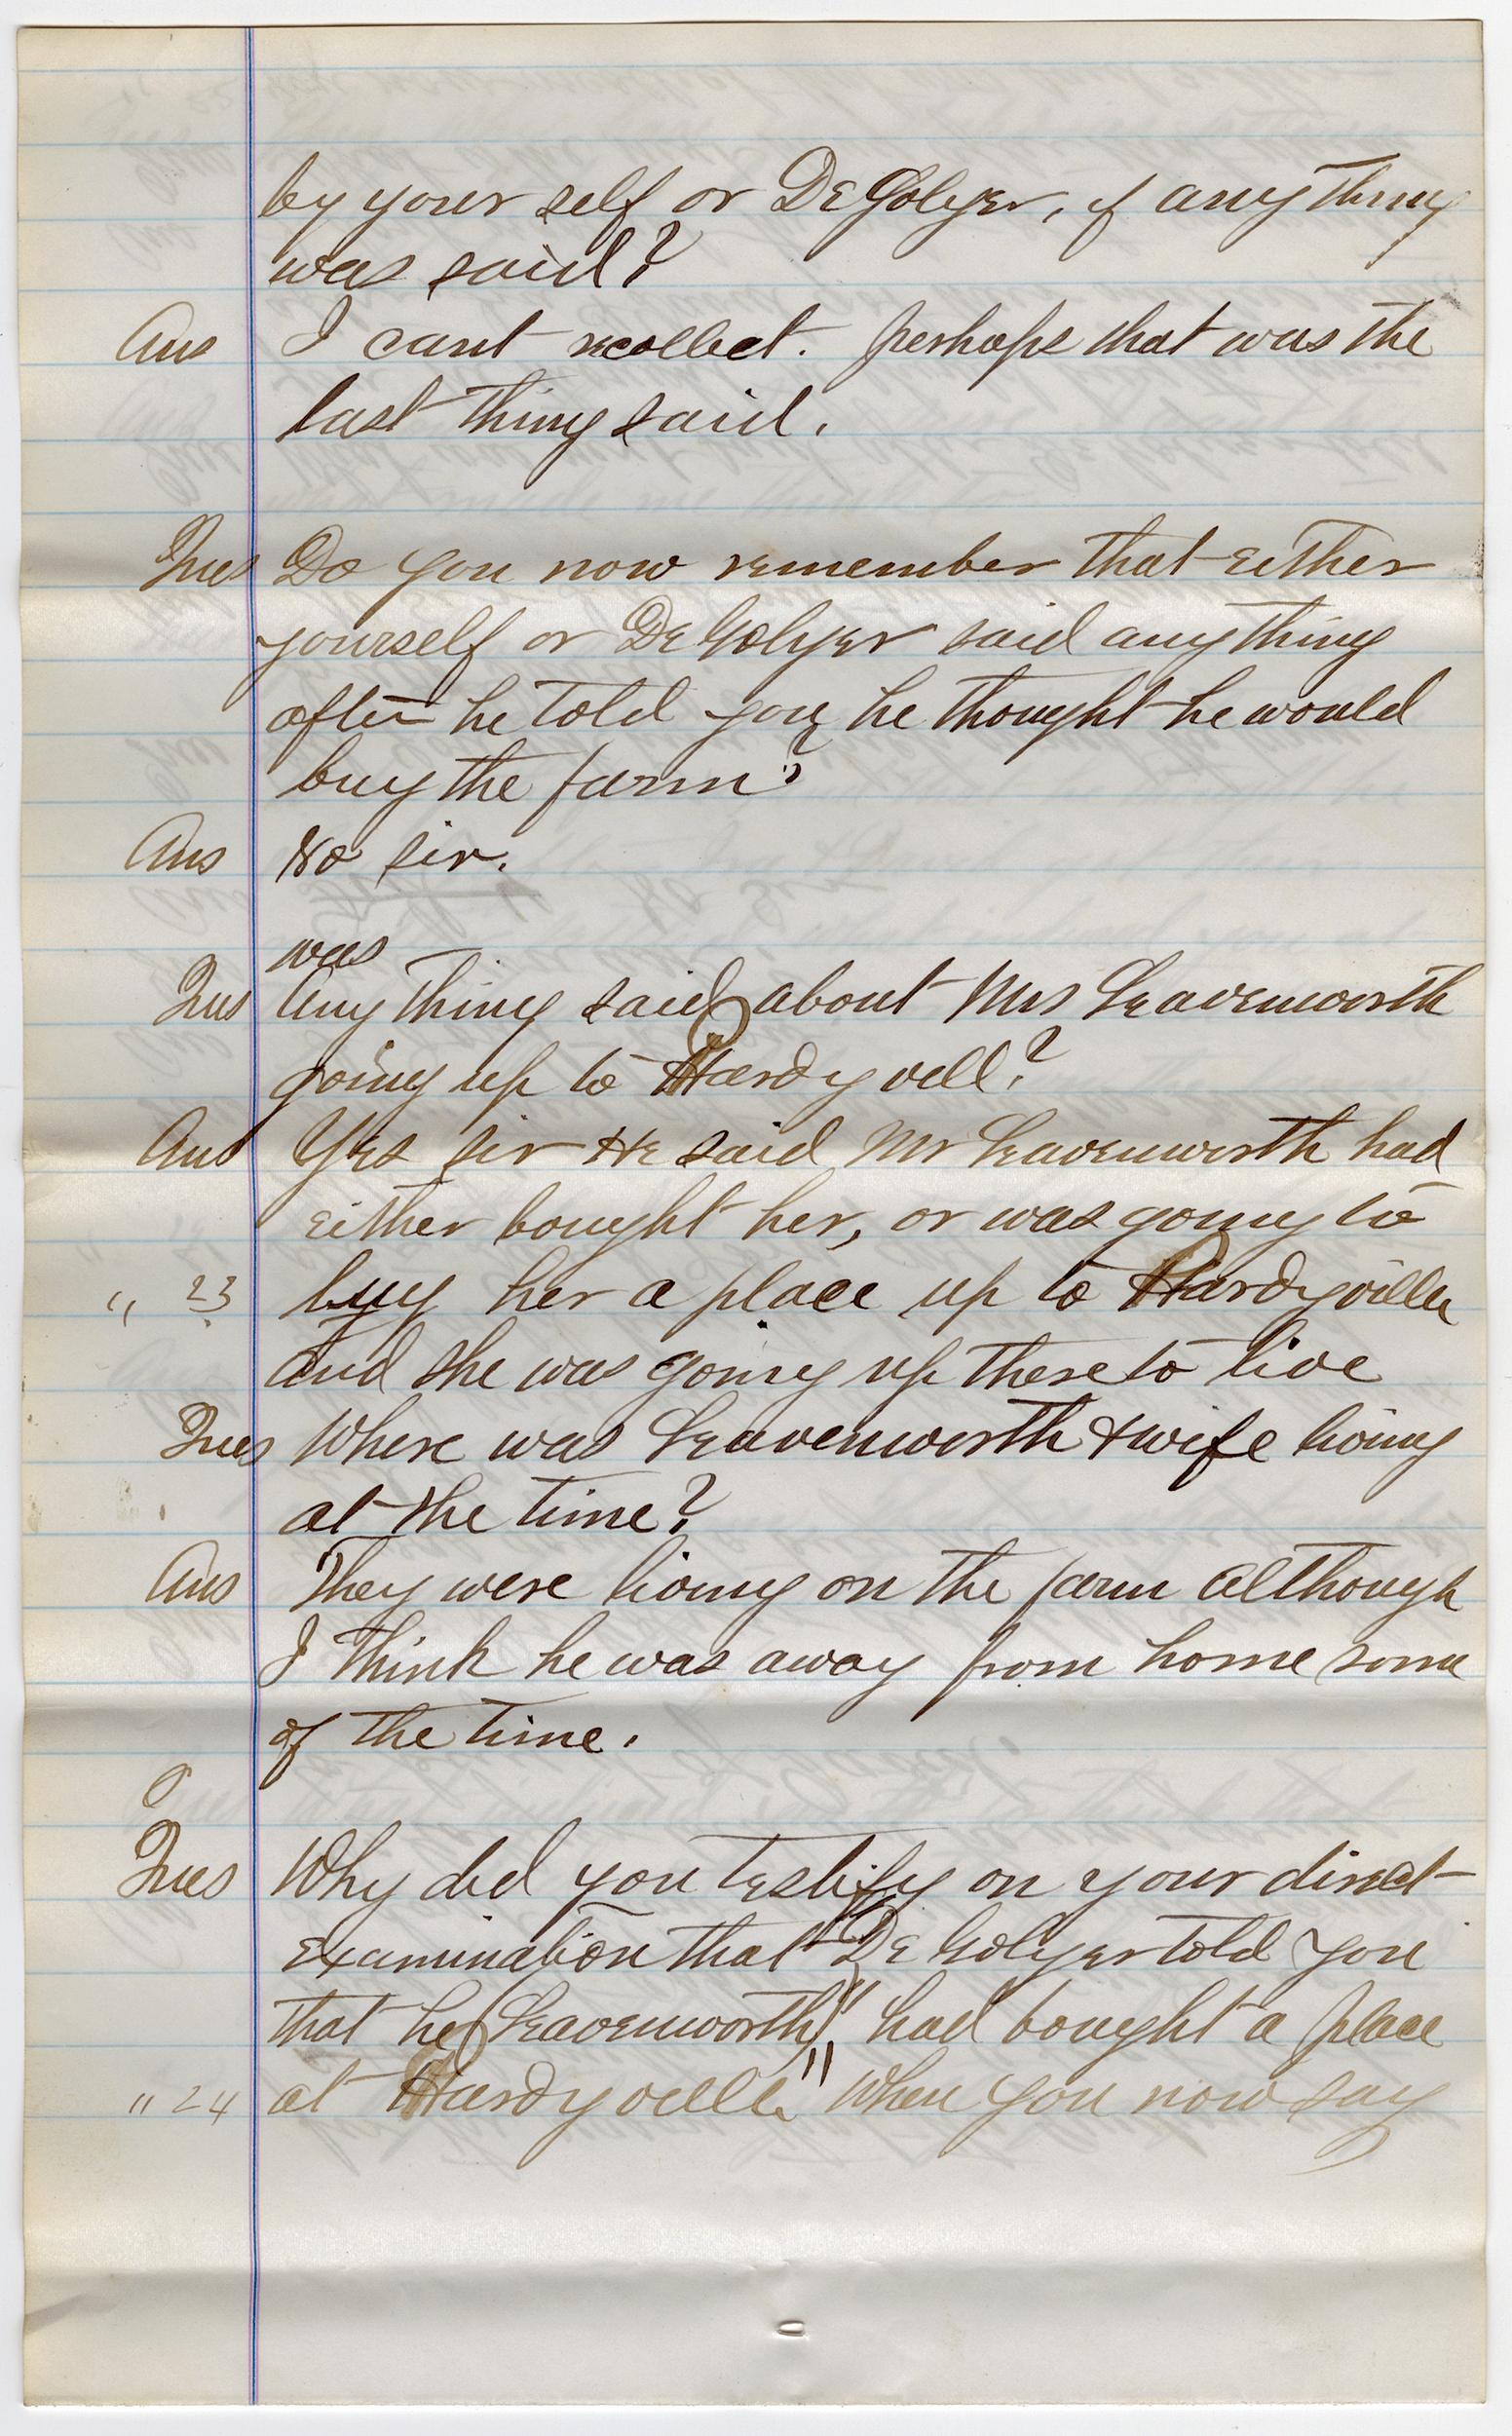 by your self or DeGolyer, if any thing
was said?
Ans I cant recollect. perhaps that was the
last thing said.
Ques Do you now remember that either
yourself or DeGolyer said anything
after he told you he thought he would
buy the farm?
Ans No sir.
was
Ques Any thing said about Mrs Leavenworth
going up to Hardyvill?
Ans Yes sir He said Mr Leavenworth had
either bought her, or was going to
" 23 buy her a place up to Hardyville
and she was going up there to live
Ques Where was Leavenworth & wife living
at the time?
Ans They were living on the farm although
I think he was away from home some
of the time.
Ques Why did you testify on your direct
examination that "DeGolyer told you
that he (Leavenworth)" had bought a place
" 24 at Hardyville" when you now say